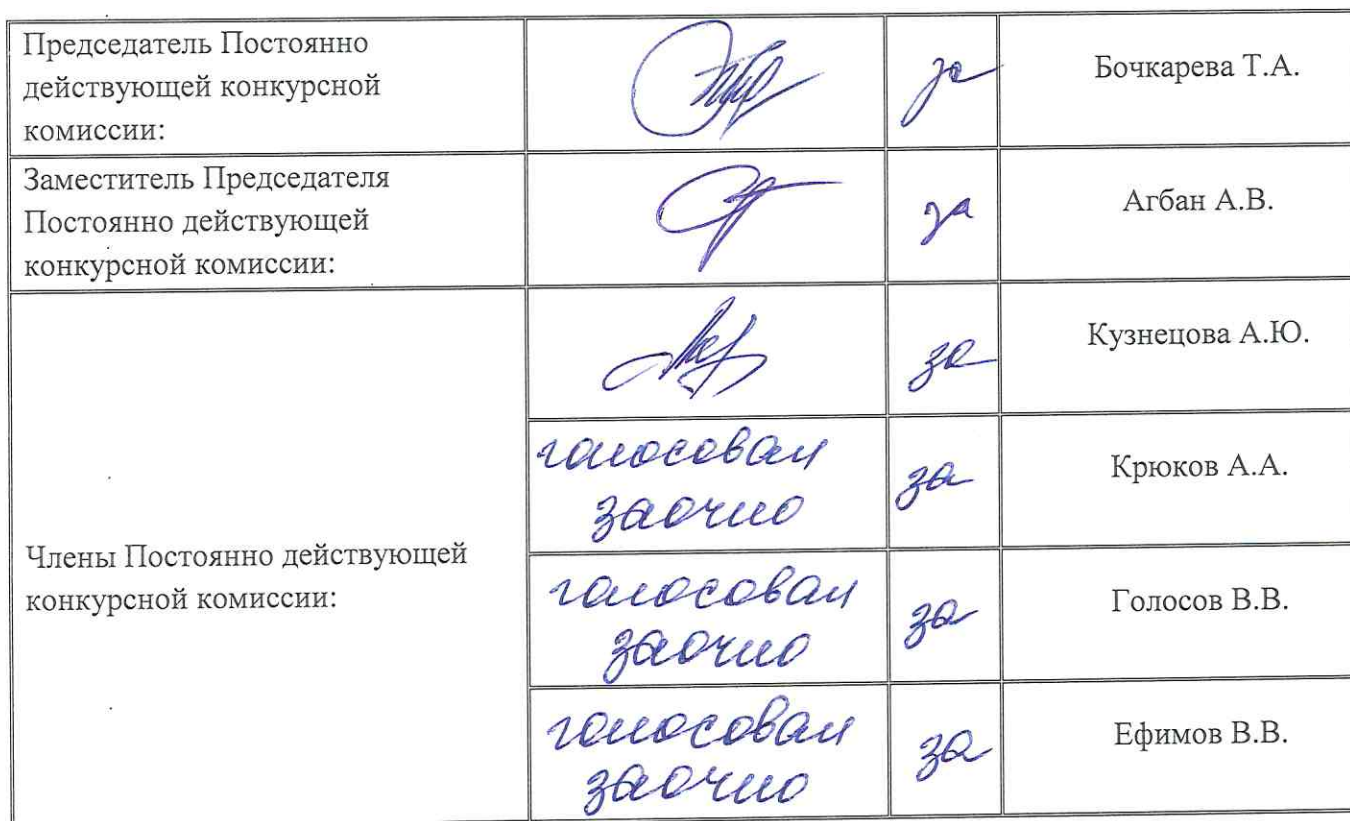 Председатель Постоянно
действующей конкурсной
комиссии:
за
Бочкарева Т.А.
Заместитель Председателя
Постоянно действующей
конкурсной комиссии:
за
Агбан А.В.
Члены Постоянно действующей
конкурсной комиссии:
за
Кузнецова А.Ю.
голосовал
заочно
за
Крюков А.А.
голосовал
заочно
за
Голосов В.В.
голосовал
заочно
за
Ефимов В.В.